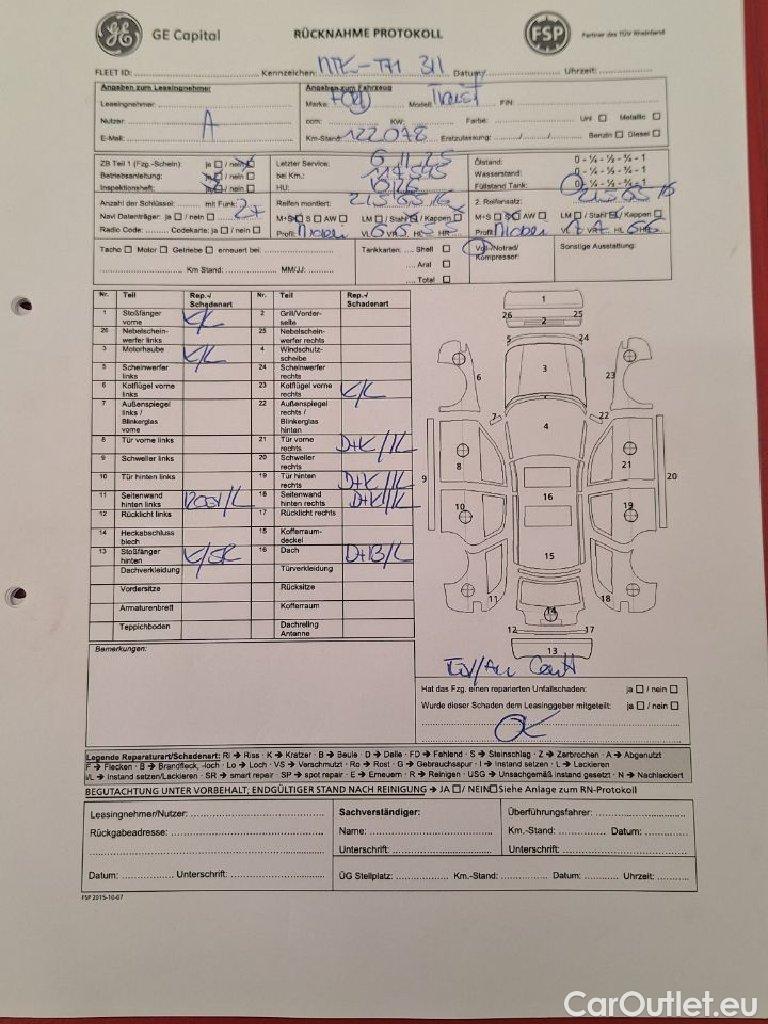 GE Capital RÜCKNAHME PROTOKOLL FSP Partner des TÜV Rheinland
FLEET ID: Kennzeichen: MTK-TH 311 Datum: Uhrzeit:
Angaben zum Leasingnehmer Angaben zum Fahrzeug
Leasingnehmer: Marke: Ford Modell: Transit FIN:
Nutzer: A ccm: KW: Farbe: Uni Metallic
E-Mail: Km-Stand: 122078 Erstzulassung: Benzin Diesel
ZB Teil 1 (Fzg.-Schein): ja / nein Letzter Service: 6.11.25 Ölstand: 0 - ¼ - ½ - ¾ - 1
Betriebsanleitung: ja / nein bei Km.: Wasserstand: 0 - ¼ - ½ - ¾ - 1
Inspektionsheft: ja / nein HU: 10/26 Füllstand Tank: 0 - ¼ - ½ - ¾ - 1
Anzahl der Schlüssel: mit Funk: 2x Reifen montiert: 215 65 16 2. Reifensatz: 215 65 16
Navi Datenträger: ja / nein M+S S AW LM / Stahl / Kappen M+S S AW LM / Stahl / Kappen
Radio Code: Codekarte: ja / nein Profil: VL 6 VR 6 HL 5 HR 5 Profil: VL 7 VR 7 HL 6 HR 6
Tacho Motor Getriebe erneuert bei: Tankkarten: Shell Vgl./Notrad/ Sonstige Ausstattung:
Aral Kompressor:
Km Stand: MM/JJ: Total
Nr. Teil Rep.-/ Schadenart Nr. Teil Rep.-/ Schadenart
1 Stoßfänger vorne K/L 2 Grill/Vorderseite
26 Nebelscheinwerfer links 25 Nebelscheinwerfer rechts
3 Motorhaube K/L 4 Windschutzscheibe
5 Scheinwerfer links 24 Scheinwerfer rechts
6 Kotflügel vorne links 23 Kotflügel vorne rechts K/L
7 Außenspiegel links / Blinkerglas vorne 22 Außenspiegel rechts / Blinkerglas hinten
8 Tür vorne links 21 Tür vorne rechts D+K/IL
9 Schweller links 20 Schweller rechts
10 Tür hinten links 19 Tür hinten rechts D+K/IL
11 Seitenwand hinten links 18 Seitenwand hinten rechts D+K/IL
12 Rücklicht links 17 Rücklicht rechts
14 Heckabschlussblech 15 Kofferraumdeckel
13 Stoßfänger hinten K/SR 16 Dach D+B/L
Dachverkleidung Türverkleidung
Vordersitze Rücksitze
Armaturenbrett Kofferraum
Teppichboden Dachreling Antenne
1
26 25
2
5 24
3
6 23
7 22
4
8 21
9 20
16
10 19
15
11 18
14
12 17
13
Bemerkungen:
Hat das Fzg. einen reparierten Unfallschaden: ja / nein
Wurde dieser Schaden dem Leasinggeber mitgeteilt: ja / nein
Legende Reparaturart/Schadenart: RI → Riss · K → Kratzer · B → Beule · D → Delle · FD → Fehlend · S → Steinschlag · Z → Zerbrochen · A → Abgenutzt
F → Flecken · B → Brandfleck, -loch · Lo → Loch · VS → Verschmutzt · Ro → Rost · G → Gebrauchsspur · I → Instand setzen · L → Lackieren
I/L → Instand setzen/Lackieren · SR → smart repair · SP → spot repair · E → Erneuern · R → Reinigen · USG → Unsachgemäß instand gesetzt · N → Nachlackiert
BEGUTACHTUNG UNTER VORBEHALT; ENDGÜLTIGER STAND NACH REINIGUNG → JA / NEIN Siehe Anlage zum RN-Protokoll
Leasingnehmer/Nutzer: Sachverständiger: Überführungsfahrer:
Rückgabeadresse: Name: Km.-Stand: Datum:
Unterschrift: Unterschrift:
Datum: Unterschrift: ÜG Stellplatz: Km.-Stand: Datum: Uhrzeit:
FSP 2015-10-07
CarOutlet.eu